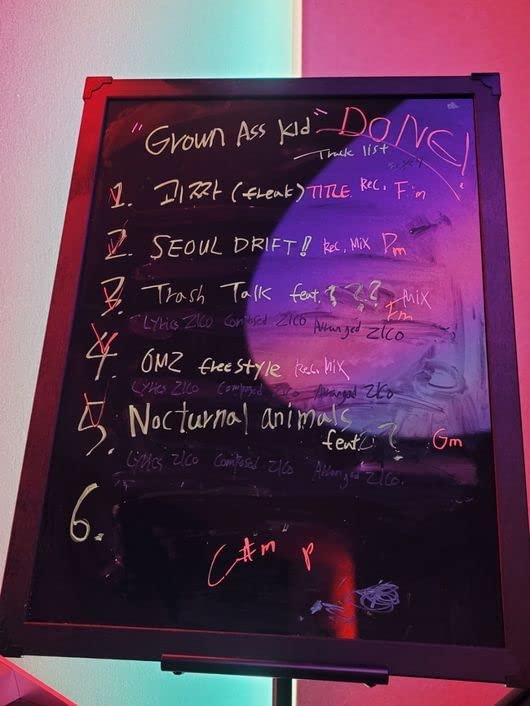 "Grown Ass kid" DONE!
Track list
1. 괴짜 (freak) TITLE Rec, F#m
2. SEOUL DRIFT! Rec, Mix Dm
3. Trash Talk feat. ? ? ? Mix
Lyrics ZICO Composed ZICO Arranged ZICO Em
4. OMZ freestyle Rec, Mix
Lyrics ZICO Composed ZICO Arranged ZICO
5. Nocturnal animals
feat. ? Gm
Lyrics ZICO Composed ZICO Arranged ZICO.
6.
C#m P